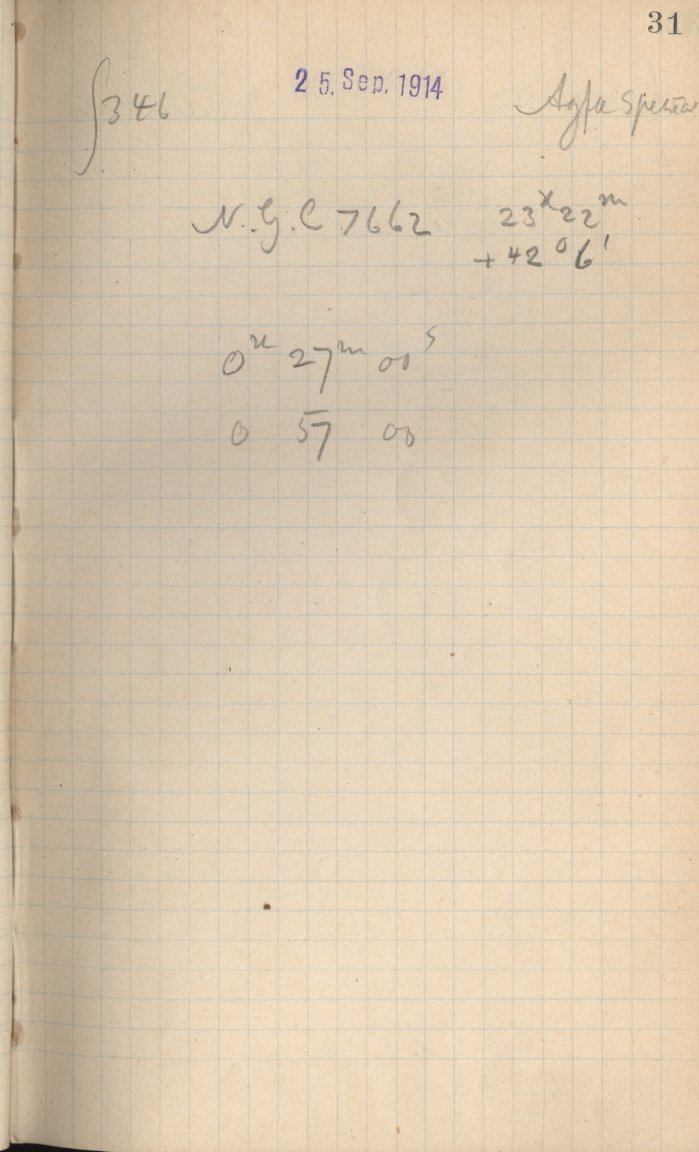 31
25. Sep. 1914
∫346 Agfa Spectral
N.G.C 7662 23ʰ22ᵐ
+42°6'
0ʰ 27ᵐ 00ˢ
0 57 00